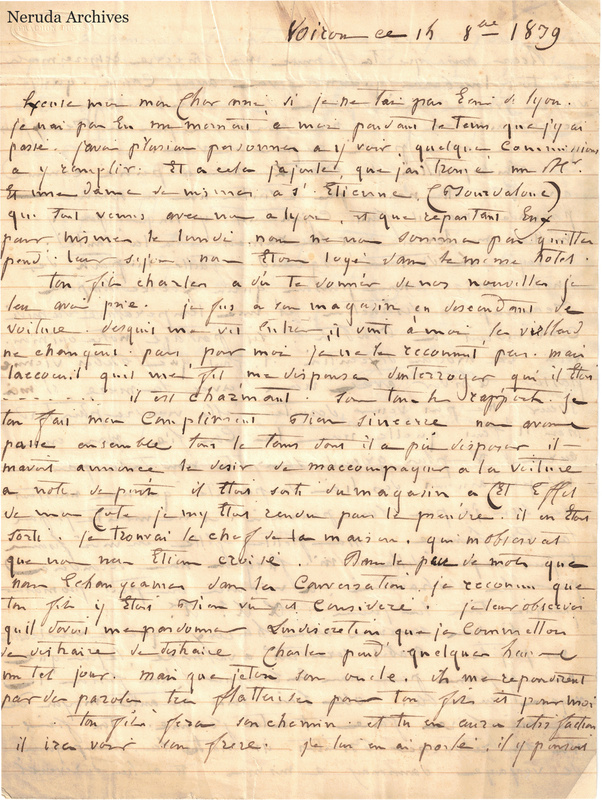 Neruda Archives
Voiron ce 14 8bre 1839
Excuse moi mon Cher ami si je ne t'ai pas Ecrit de lyon.
je n'ai pas Eu un moment a moi pendant le tems que j'y ai
passé. j'avai plusieur personnes a y voir, quelques Commissions
a y remplir. Et a cela j'ajoute, que j'ai trouvé un Mr.
Et une dame de nismes a St. Etienne,
qui sont venus avec nous a lyon, et que repartant Eux
pour nismes le lundi, nous ne nous sommes pas quitter
pend. leur sejour. nous Etions logé dans le meme hotel.
ton fils charles a du te donner de nos nouvelles je
l'en avai prié. je fus a son magasin en descendant de
voiture. desqu'il me vit Entrer, il vint a moi les viellard
ne changent pas pour moi je ne le reconnut pas. mais
l'accoeuil qu'il me fit me dispensa d'interroger qui il Etoit
il est charmant. sous tous les rapports. je
ton fait mon Compliment bien sincere nous avons
passé ensemble tous le tems dont il a pu disposer il
m'avait annoncé le desir de m'accompagner a la voiture
a notre depart il Etoit sorti du magasin a Cet Effet
de mon Coté je my Etois rendu pour le prendre. il en Etoit
sorti. je trouvai le chef de la maison. qui m'observat
que nous nous Etions croisé. Dans le peu de mots que
nous Echangeames dans la Conversation, je reconnu que
ton fils y Etoit bien vu et Consideré. je leur observoi
qu'il devoit me pardonner L'indiscretion que je Commettoi
de distraire Charles pend. quelques heures
un tel jour. mais que j'etoi son oncle. ils me repondirent
par des paroles tres flatteuses pour ton fils et pour moi
ton fils fera son chemin. et tu en aura satisfaction
il ira voir son frere. je lui en ai parlé, il y pensait